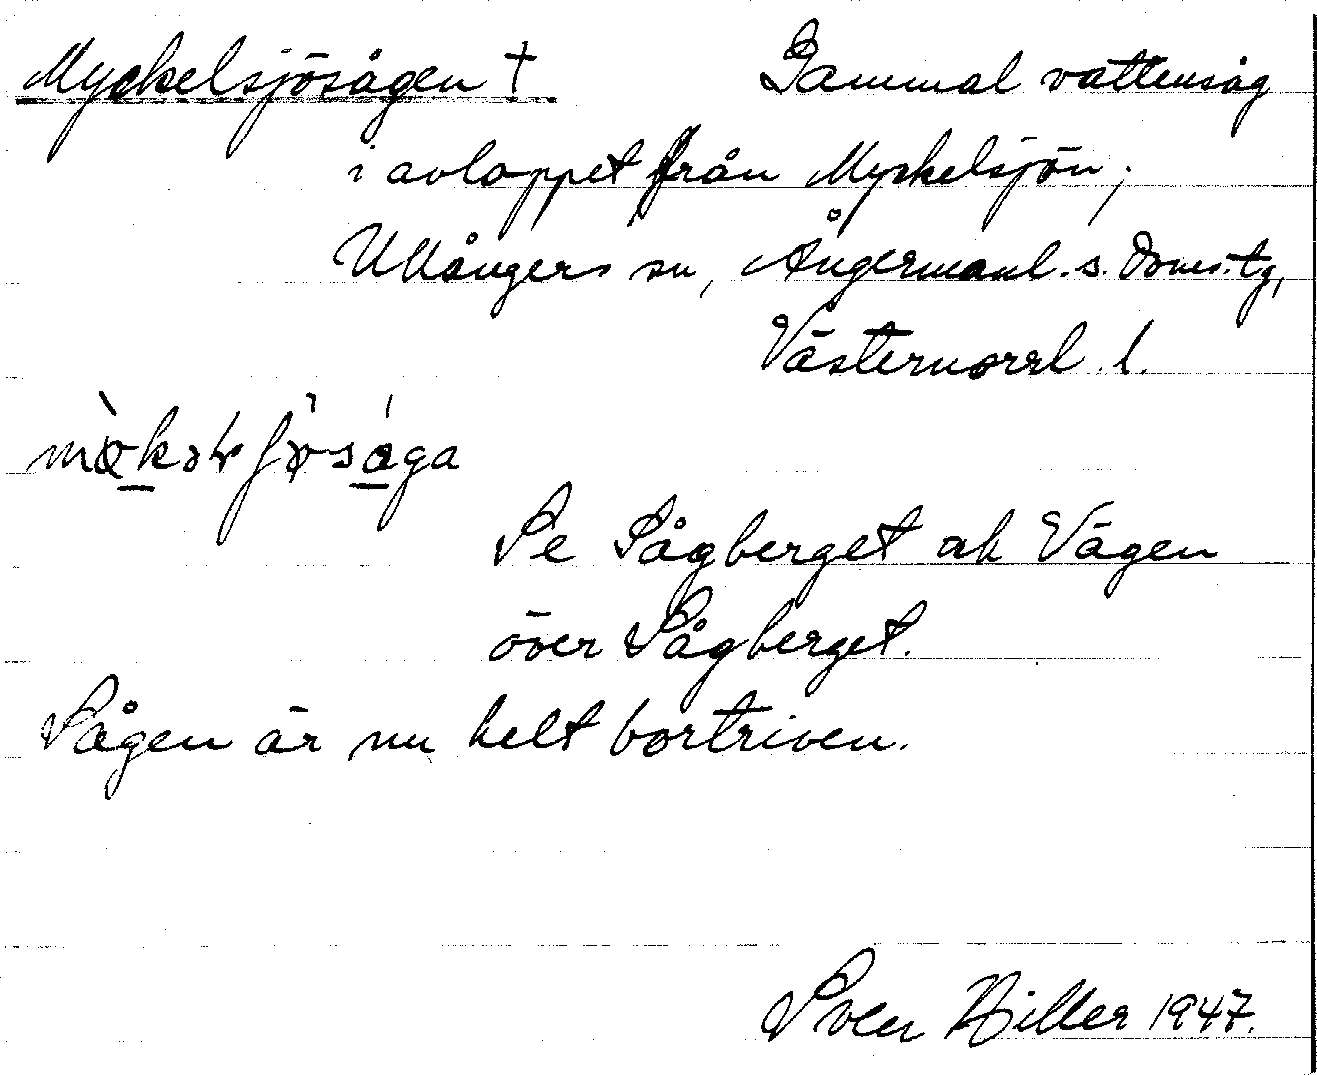 Myckelsjösågen † Gammal vattensåg
i avloppet från Myckelsjön,
Ullångers sn, Ångermanl. s. Doms.tg,
Västernorrl. l.
Se Sågberget ock Vägen
över Sågberget.
Sågen är nu helt bortriven.
Sven Hiller 1947.